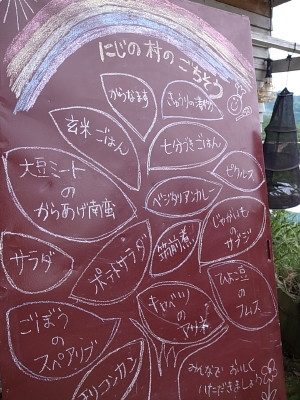 にじの村のごちそう
きゅうりの
玄米ごはん
七分づきごはん
大豆ミート
の
からあげ南蛮
ピクルス
ベジタリアンカレー
じゃがいも
の
サブジ
サラダ
ポテトサラダ
筑前煮
ひよこ豆
の
フムス
キャベツ
の
ごぼう
の
スペアリブ
みんなで おいしく
いただきましょう